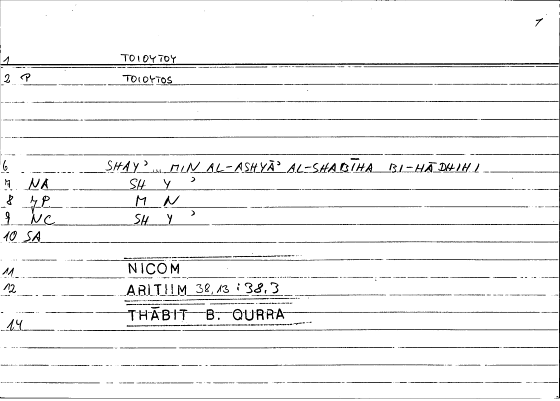 1
1 TOIOYTOY
2 P TOIOYTOS
6 SHAYʾ ... MIN AL-ASHYĀʾ AL-SHABĪHA BI-HĀDHIHI
7 NA SH Y ʾ
8 4P M N
9 NC SH Y ʾ
10 SA
11 NICOM
12 ARITIIM 38,13 : 38,3
14 THĀBIT B. QURRA